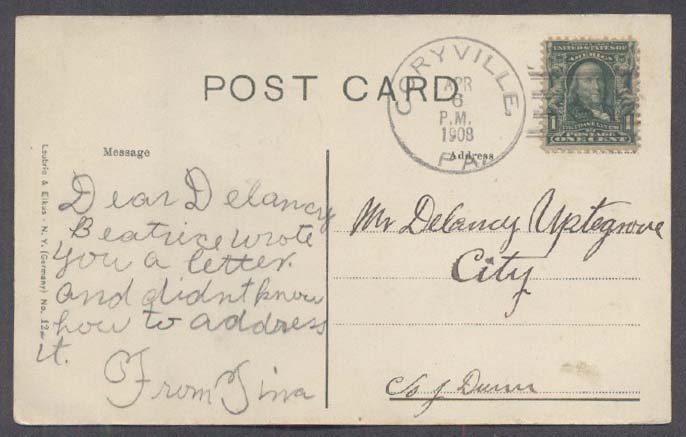 POST CARD
CORYVILLE,
APR
6
P.M.
1908
PA.
UNITED STATES OF
AMERICA
1 1
POSTAGE
ONE CENT
Message
Address
Dear Delancy
Beatrice wrote
you a letter.
and didnt know
how to address
it.
From Tina
Mr Delancy Uptegrove
City
c/o J Dunn
Leubrie & Elkus - N. Y. (Germany) No.